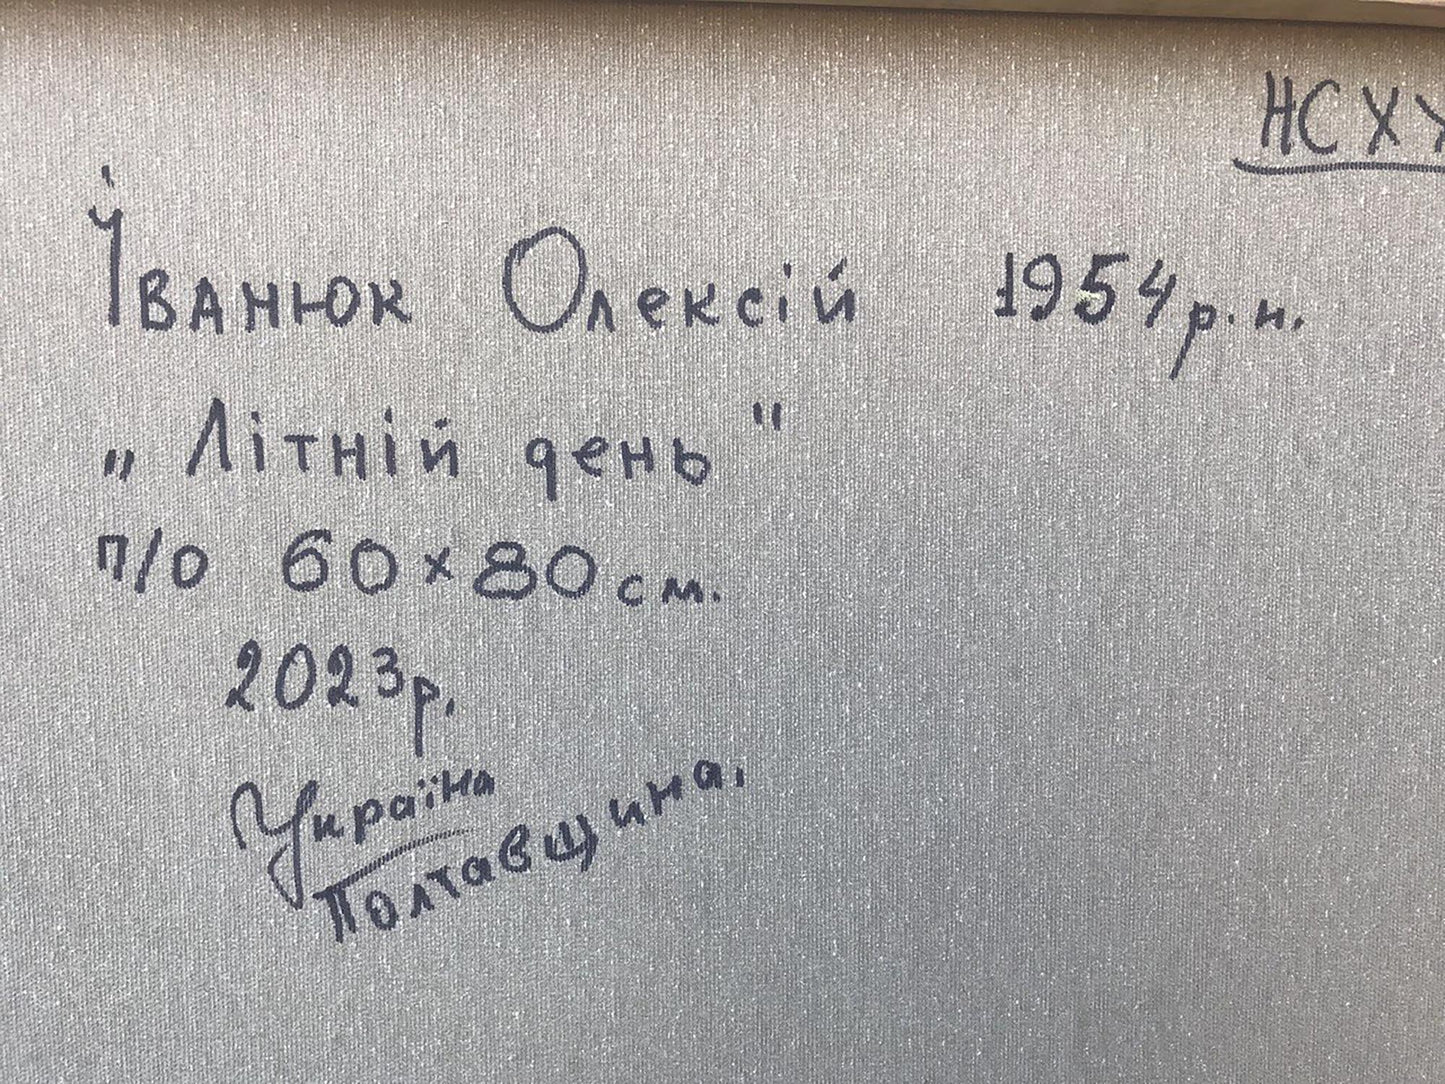 НСХУ
Іванюк Олексій 1954 р.н.
„Літній день"
п/о 60×80 см.
2023 р.
Україна
Полтавщина.